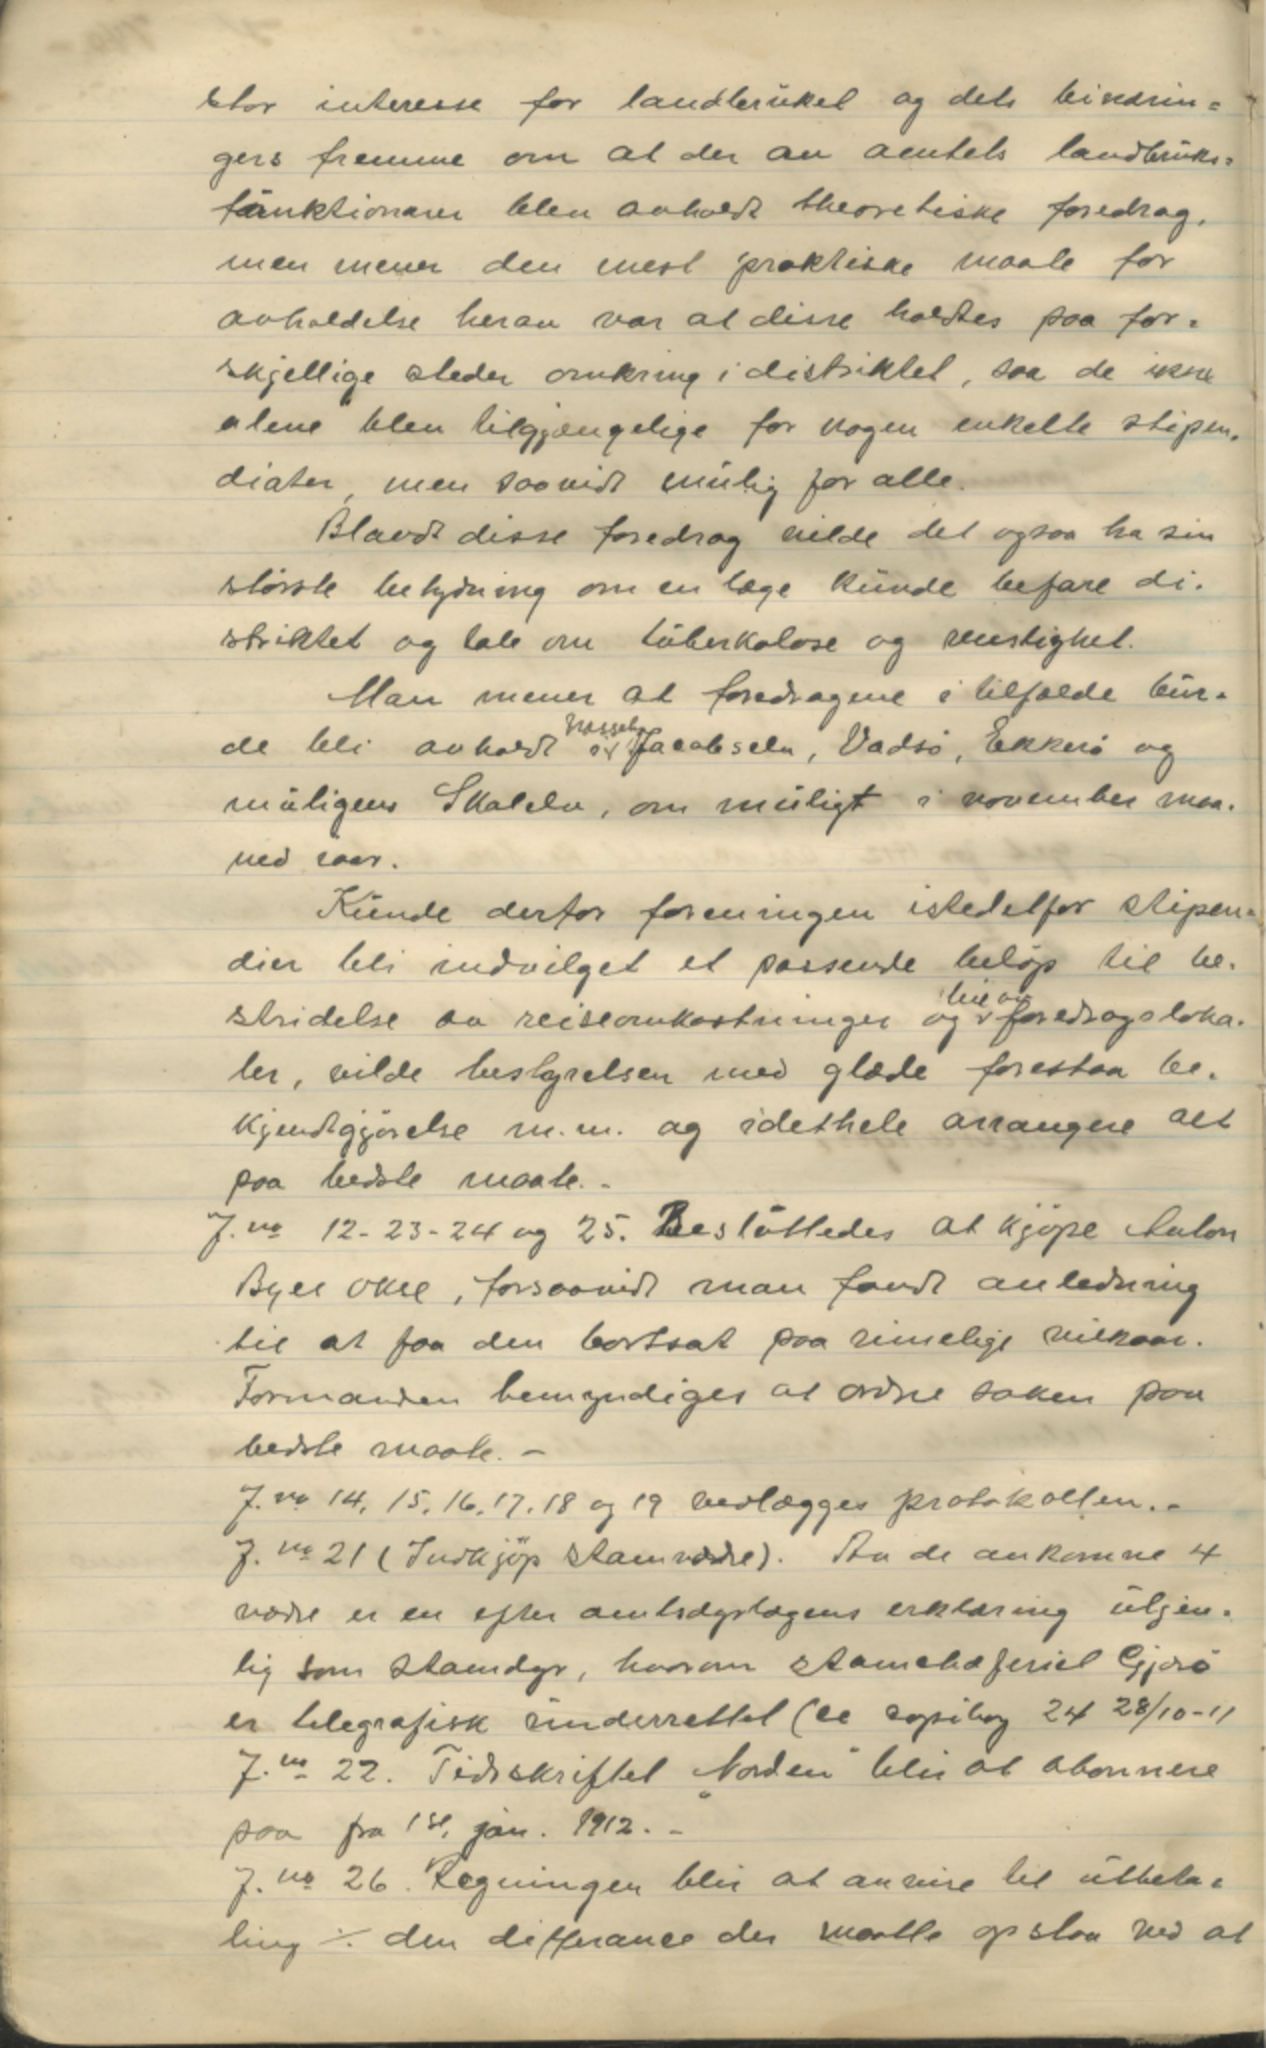 stor interesse for landbruket og dets binærin=
gers fremme om at der av amtets landbruks=
funktionærer blev avholdt theoretiske foredrag,
men mener den mest praktiske maate for
avholdelse herav var at disse holdtes paa for=
skjellige steder omkring i distriktet, saa de ikke
alene blev tilgjængelige for nogen enkelte stipen=
diater, men saavidt mulig for alle.
Blandt disse foredrag vilde det ogsaa ha sin
største betydning om en læge kunde befare di=
striktet og tale om tuberkolose og renslighet.
Man mener at foredragene i tilfælde bur=
de bli avholdt i Jacobselv, Vadsø, Ekkerø og
muligens Skalelv, om muligt i november maa=
ned iaar.
Kunde derfor foreningen istedetfor stipen=
dier bli indvilget et passende beløp til be=
stridelse av reiseomkostninger og leie av foredragsloka=
ler, vilde bestyrelsen med glæde forestaa be=
kjendtgjørelse m.m. og idethele arrangere alt
paa bedste maate. -
J. no 12-23-24 og 25. Besluttedes at kjøpe Anton
Byes okse, forsaavidt man fandt anledning
til at faa den bortsat paa rimelige vilkaar.
Formanden bemyndiges at ordne saken paa
bedste maate. -
J. no 14, 15, 16, 17, 18 og 19 vedlægges protokollen. -
J. no 21 (Indkjøp stamvædre). Av de ankomne 4
vædre er en efter amtsdyrlægens erklæring utjen=
lig som stamdyr, hvorom stamschæferiet Gjerø
er telegrafisk underrettet (se copibog 24 28/10-11
J. no 22. Tidsskriftet „Norden" blir at abonnere
paa fra 1st. jan. 1912. -
J. no 26. Regningen blir at anvise til utbeta=
ling ÷ den differance der maatte opstaa ved at